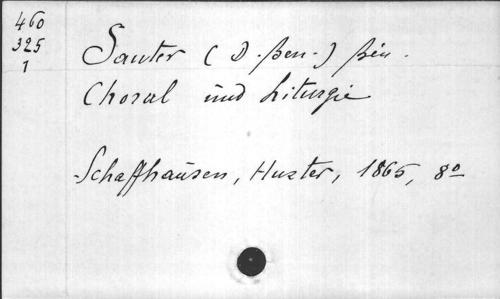 460
325
1
Sauter (D. Ben.) Ben.
Choral und Liturgie
Schaffhausen, Hurter, 1865, 8º